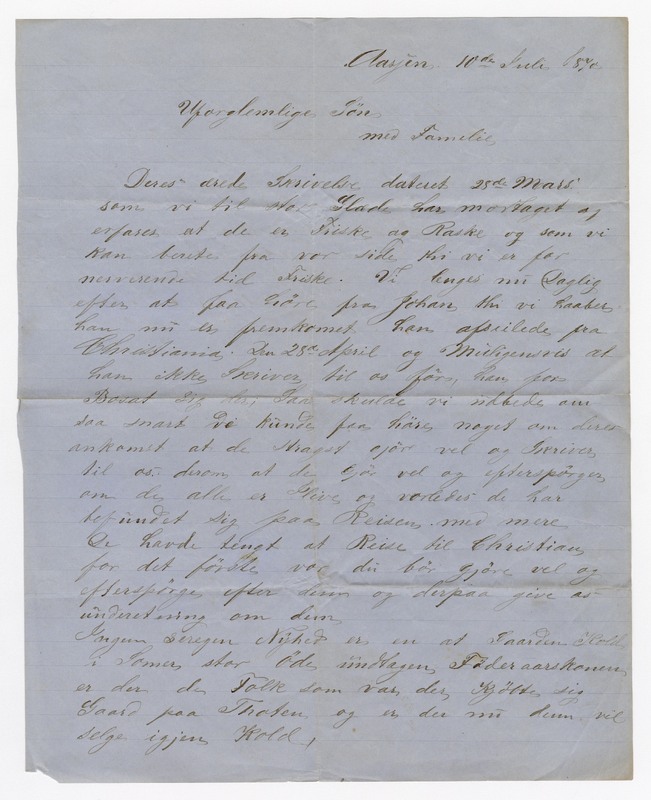 Aasen 10de Juli
Uforglemlige Søn
med Famelie
Deres ærede Skrivelse dateret 25de Mars
som vi til stor Glæde har modtaget og
erfarer at de er Friske og Raske og som vi
kan berete fra vor side thi vi er for
nerverende til Friske. Vi lenges nu Daglig
efter at faa Høre fra Johan thi vi haaber
han nu er fremkomet han afseilede fra
Christiania. Den 28de April og Muligensvis at
han ikke Skriver til os før han for
sig der, Saa skulde vi udbede om
saa snart Di kunde faa høre noget om deres
ankomst at de stragst gjøre vel og Skriver
til os derom at de gjør vel og efterspørger
om de alle er Ilive og vorledes de har
befundet sig paa Reisen med mere
De havde tengt at Reise til Christian
for det første vor du bor gjøre vel og
efterspørge efter dem og derpaa give os
underetning om dem
Ingen seregen Nyhed er en at Gaarden Kold
i Somer stor Øde undtagen Føderaarskonen
er der de Folk som var der Kjøbte sig
Gaard paa Thoten og er der nu dem vil
selge igjen Kold,